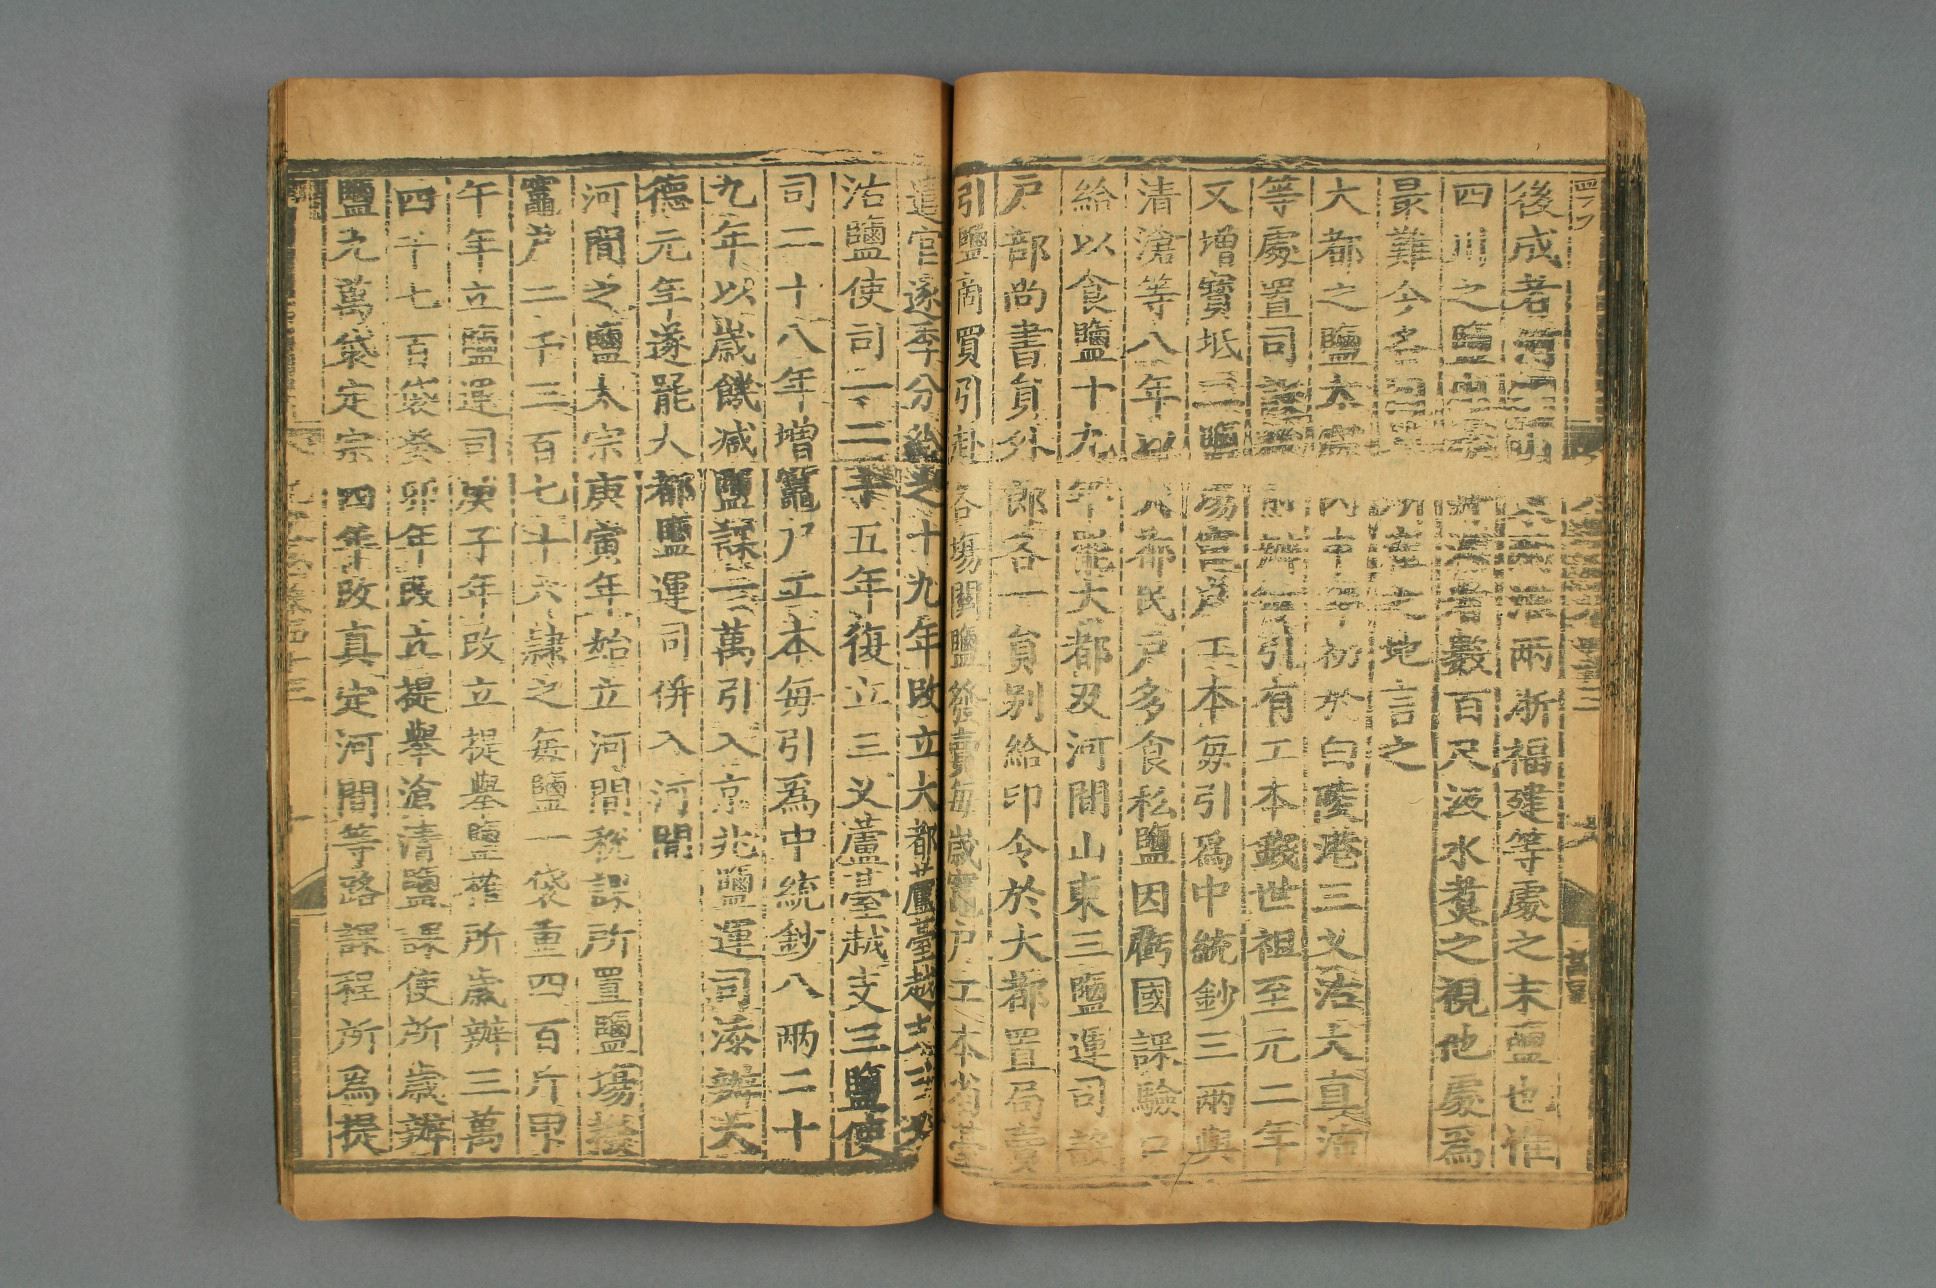 後成者河間山東兩淮兩浙福建等處之末鹽也惟
四川之鹽出於井深者數百尺汲水煮之視他處爲
最難今各因其所產之地言之
大都之鹽太宗丙申年初於白陵港三义沽大直沽
等處置司設熬煎辦每引有工本錢世祖至元二年
又增寳坻三鹽場竈戸工本每引爲中統鈔三兩與
清滄等八年以大都民戸多食私鹽因虧國課驗口
給以食鹽十九年罷大都及河間山東三鹽運司設
戸部尚書貟外郎各一貟别給印令於大都置局賣
引鹽商買引赴各場關鹽發賣每歲竈戸工本省臺
遣官逐季分給之十九年改立大都蘆臺越支三义
沽鹽使司一二十五年復立三义蘆臺越支三鹽使
司二十八年増竈戸工本每引爲中統鈔八兩二十
九年以歲饑減鹽課一萬引入京兆鹽運司添辦大
德元年遂罷大都鹽運司併入河間
河間之鹽太宗庚寅年始立河間稅課所置鹽場撥
竈戸二千三百七十六隷之每鹽一袋重四百斤甲
午年立鹽運司庚子年改立提舉鹽榷所歲辦三萬
四千七百袋癸卯年改立提舉滄清鹽課使所歲辦
鹽九萬袋定宗四年改真定河間等路課程所爲提
元史志卷四十三